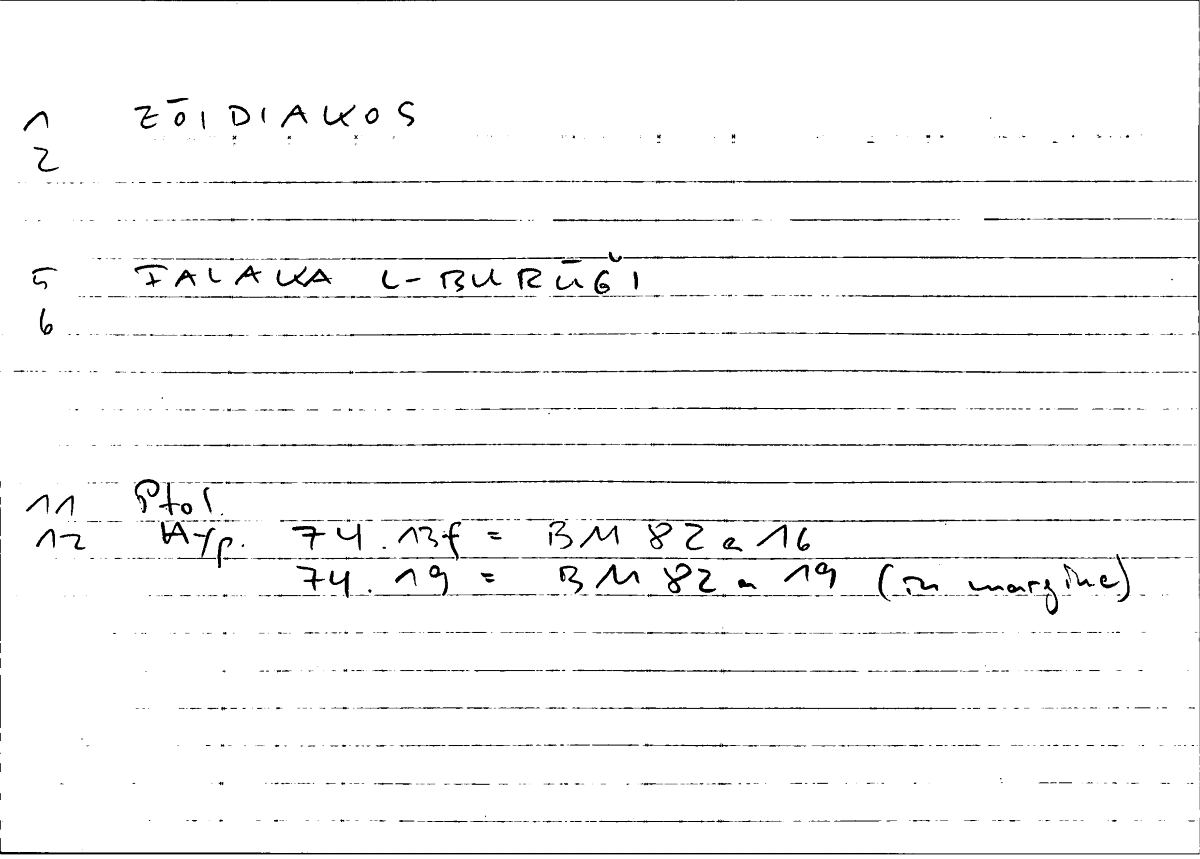 1 ZŌIDIAKOS
2
5 FALAKA L-BURŪǦI
6
11 Ptol.
12 Hyp. 74.13f = BM 82 a 16
74.19 = BM 82 a 19 (in margine)